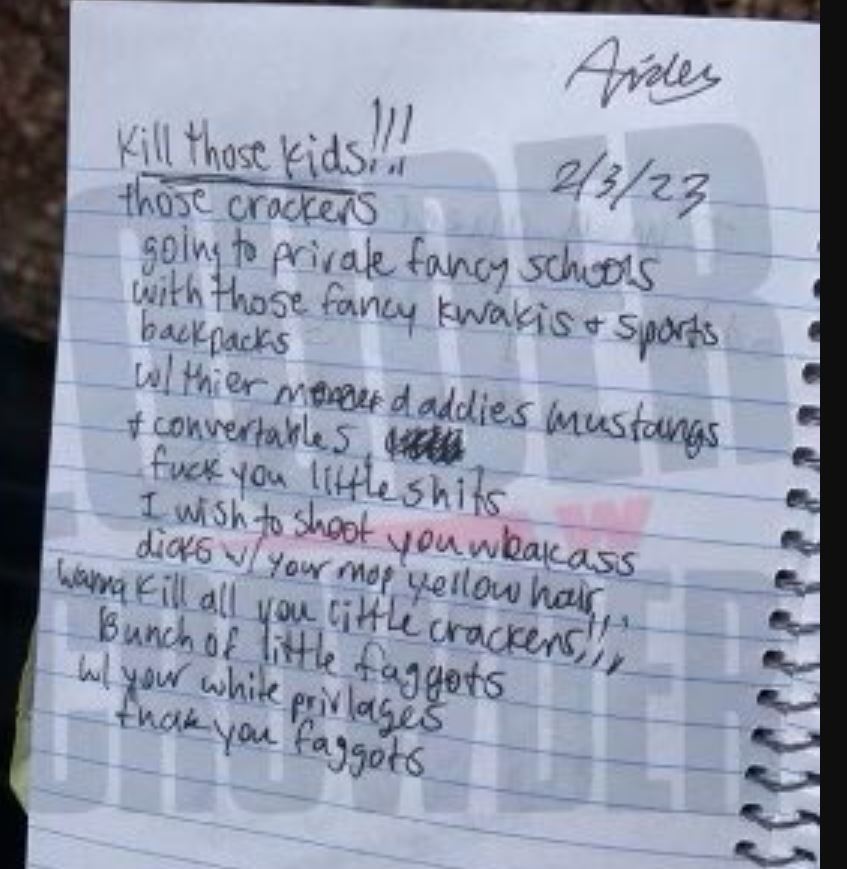 Aiden
Kill those kids!!!
2/3/23
those crackers
going to private fancy schools
with those fancy kwakis + sports
backpacks
w/ thier daddies mustangs
+ convertables
fuck you little shits
I wish to shoot you weakass
dicks w/ your mop yellow hair,,,
wanna kill all you little crackers!!!
Bunch of little faggots
w/ your white privlages
fuck you faggots
LOUDER
W
CROWDER